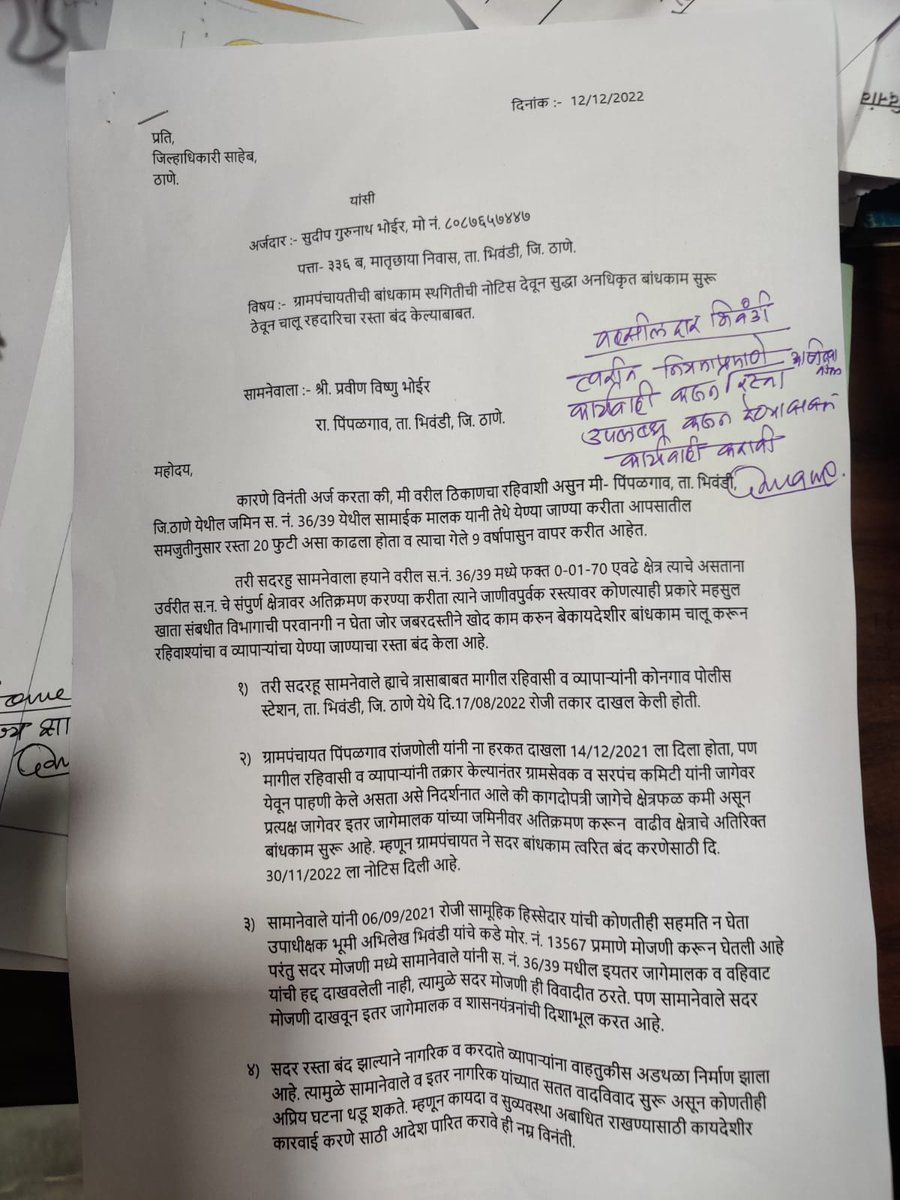 दिनांक :- 12/12/2022
प्रति,
जिल्हाधिकारी साहेब,
ठाणे.
यांसी
अर्जदार :- सुदीप गुरुनाथ भोईर, मो नं. ८०८७६५७४४७
पत्ता- ३३६ ब, मातृछाया निवास, ता. भिवंडी, जि. ठाणे.
विषय :- ग्रामपंचायतीची बांधकाम स्थगितीची नोटिस देवून सुद्धा अनधिकृत बांधकाम सुरू
ठेवून चालू रहदारिचा रस्ता बंद केल्याबाबत.
तहसीलदार भिवंडी
त्वरीत नियमाप्रमाणे
कार्यवाही करून रस्ता
उपलब्ध करून देण्याबाबत
कार्यवाही करावी
सामनेवाला :- श्री. प्रवीण विष्णु भोईर
रा. पिंपळगाव, ता. भिवंडी, जि. ठाणे.
महोदय,
कारणे विनंती अर्ज करता की, मी वरील ठिकाणचा रहिवाशी असुन मी- पिंपळगाव, ता. भिवंडी,
जि.ठाणे येथील जमिन स. नं. 36/39 येथील सामाईक मालक यानी तेथे येण्या जाण्या करीता आपसातील
समजुतीनुसार रस्ता 20 फुटी असा काढला होता व त्याचा गेले 9 वर्षापासुन वापर करीत आहेत.
तरी सदरहु सामनेवाला हयाने वरील स.नं. 36/39 मध्ये फक्त 0-01-70 एवढे क्षेत्र त्याचे असताना
उर्वरीत स.न. चे संपुर्ण क्षेत्रावर अतिक्रमण करण्या करीता त्याने जाणीवपुर्वक रस्त्यावर कोणत्याही प्रकारे महसुल
खाता संबधीत विभागाची परवानगी न घेता जोर जबरदस्तीने खोद काम करुन बेकायदेशीर बांधकाम चालू करून
रहिवाश्यांचा व व्यापाऱ्यांचा येण्या जाण्याचा रस्ता बंद केला आहे.
१) तरी सदरहू सामनेवाले ह्याचे त्रासाबाबत मागील रहिवासी व व्यापाऱ्यांनी कोनगाव पोलीस
स्टेशन, ता. भिवंडी, जि. ठाणे येथे दि.17/08/2022 रोजी तकार दाखल केली होती.
२) ग्रामपंचायत पिंपळगाव रांजणोली यांनी ना हरकत दाखला 14/12/2021 ला दिला होता, पण
मागील रहिवासी व व्यापाऱ्यांनी तक्रार केल्यानंतर ग्रामसेवक व सरपंच कमिटी यांनी जागेवर
येवून पाहणी केले असता असे निदर्शनात आले की कागदोपत्री जागेचे क्षेत्रफळ कमी असून
प्रत्यक्ष जागेवर इतर जागेमालक यांच्या जमिनीवर अतिक्रमण करून वाढीव क्षेत्राचे अतिरिक्त
बांधकाम सुरू आहे. म्हणून ग्रामपंचायत ने सदर बांधकाम त्वरित बंद करणेसाठी दि.
30/11/2022 ला नोटिस दिली आहे.
३) सामानेवाले यांनी 06/09/2021 रोजी सामूहिक हिस्सेदार यांची कोणतीही सहमति न घेता
उपाधीक्षक भूमी अभिलेख भिवंडी यांचे कडे मोर. नं. 13567 प्रमाणे मोजणी करून घेतली आहे
परंतु सदर मोजणी मध्ये सामानेवाले यांनी स. नं. 36/39 मधील इयतर जागेमालक व वहिवाट
यांची हद्द दाखवलेली नाही, त्यामुळे सदर मोजणी ही विवादीत ठरते. पण सामानेवाले सदर
मोजणी दाखवून इतर जागेमालक व शासनयंत्रनांची दिशाभूल करत आहे.
४) सदर रस्ता बंद झाल्याने नागरिक व करदाते व्यापाऱ्यांना वाहतुकीस अडथळा निर्माण झाला
आहे. त्यामुळे सामानेवाले व इतर नागरिक यांच्यात सतत वादविवाद सुरू असून कोणतीही
अप्रिय घटना धडू शकते. म्हणून कायदा व सुव्यवस्था अबाधित राखण्यासाठी कायदेशीर
कारवाई करणे साठी आदेश पारित करावे ही नम्र विनंती.